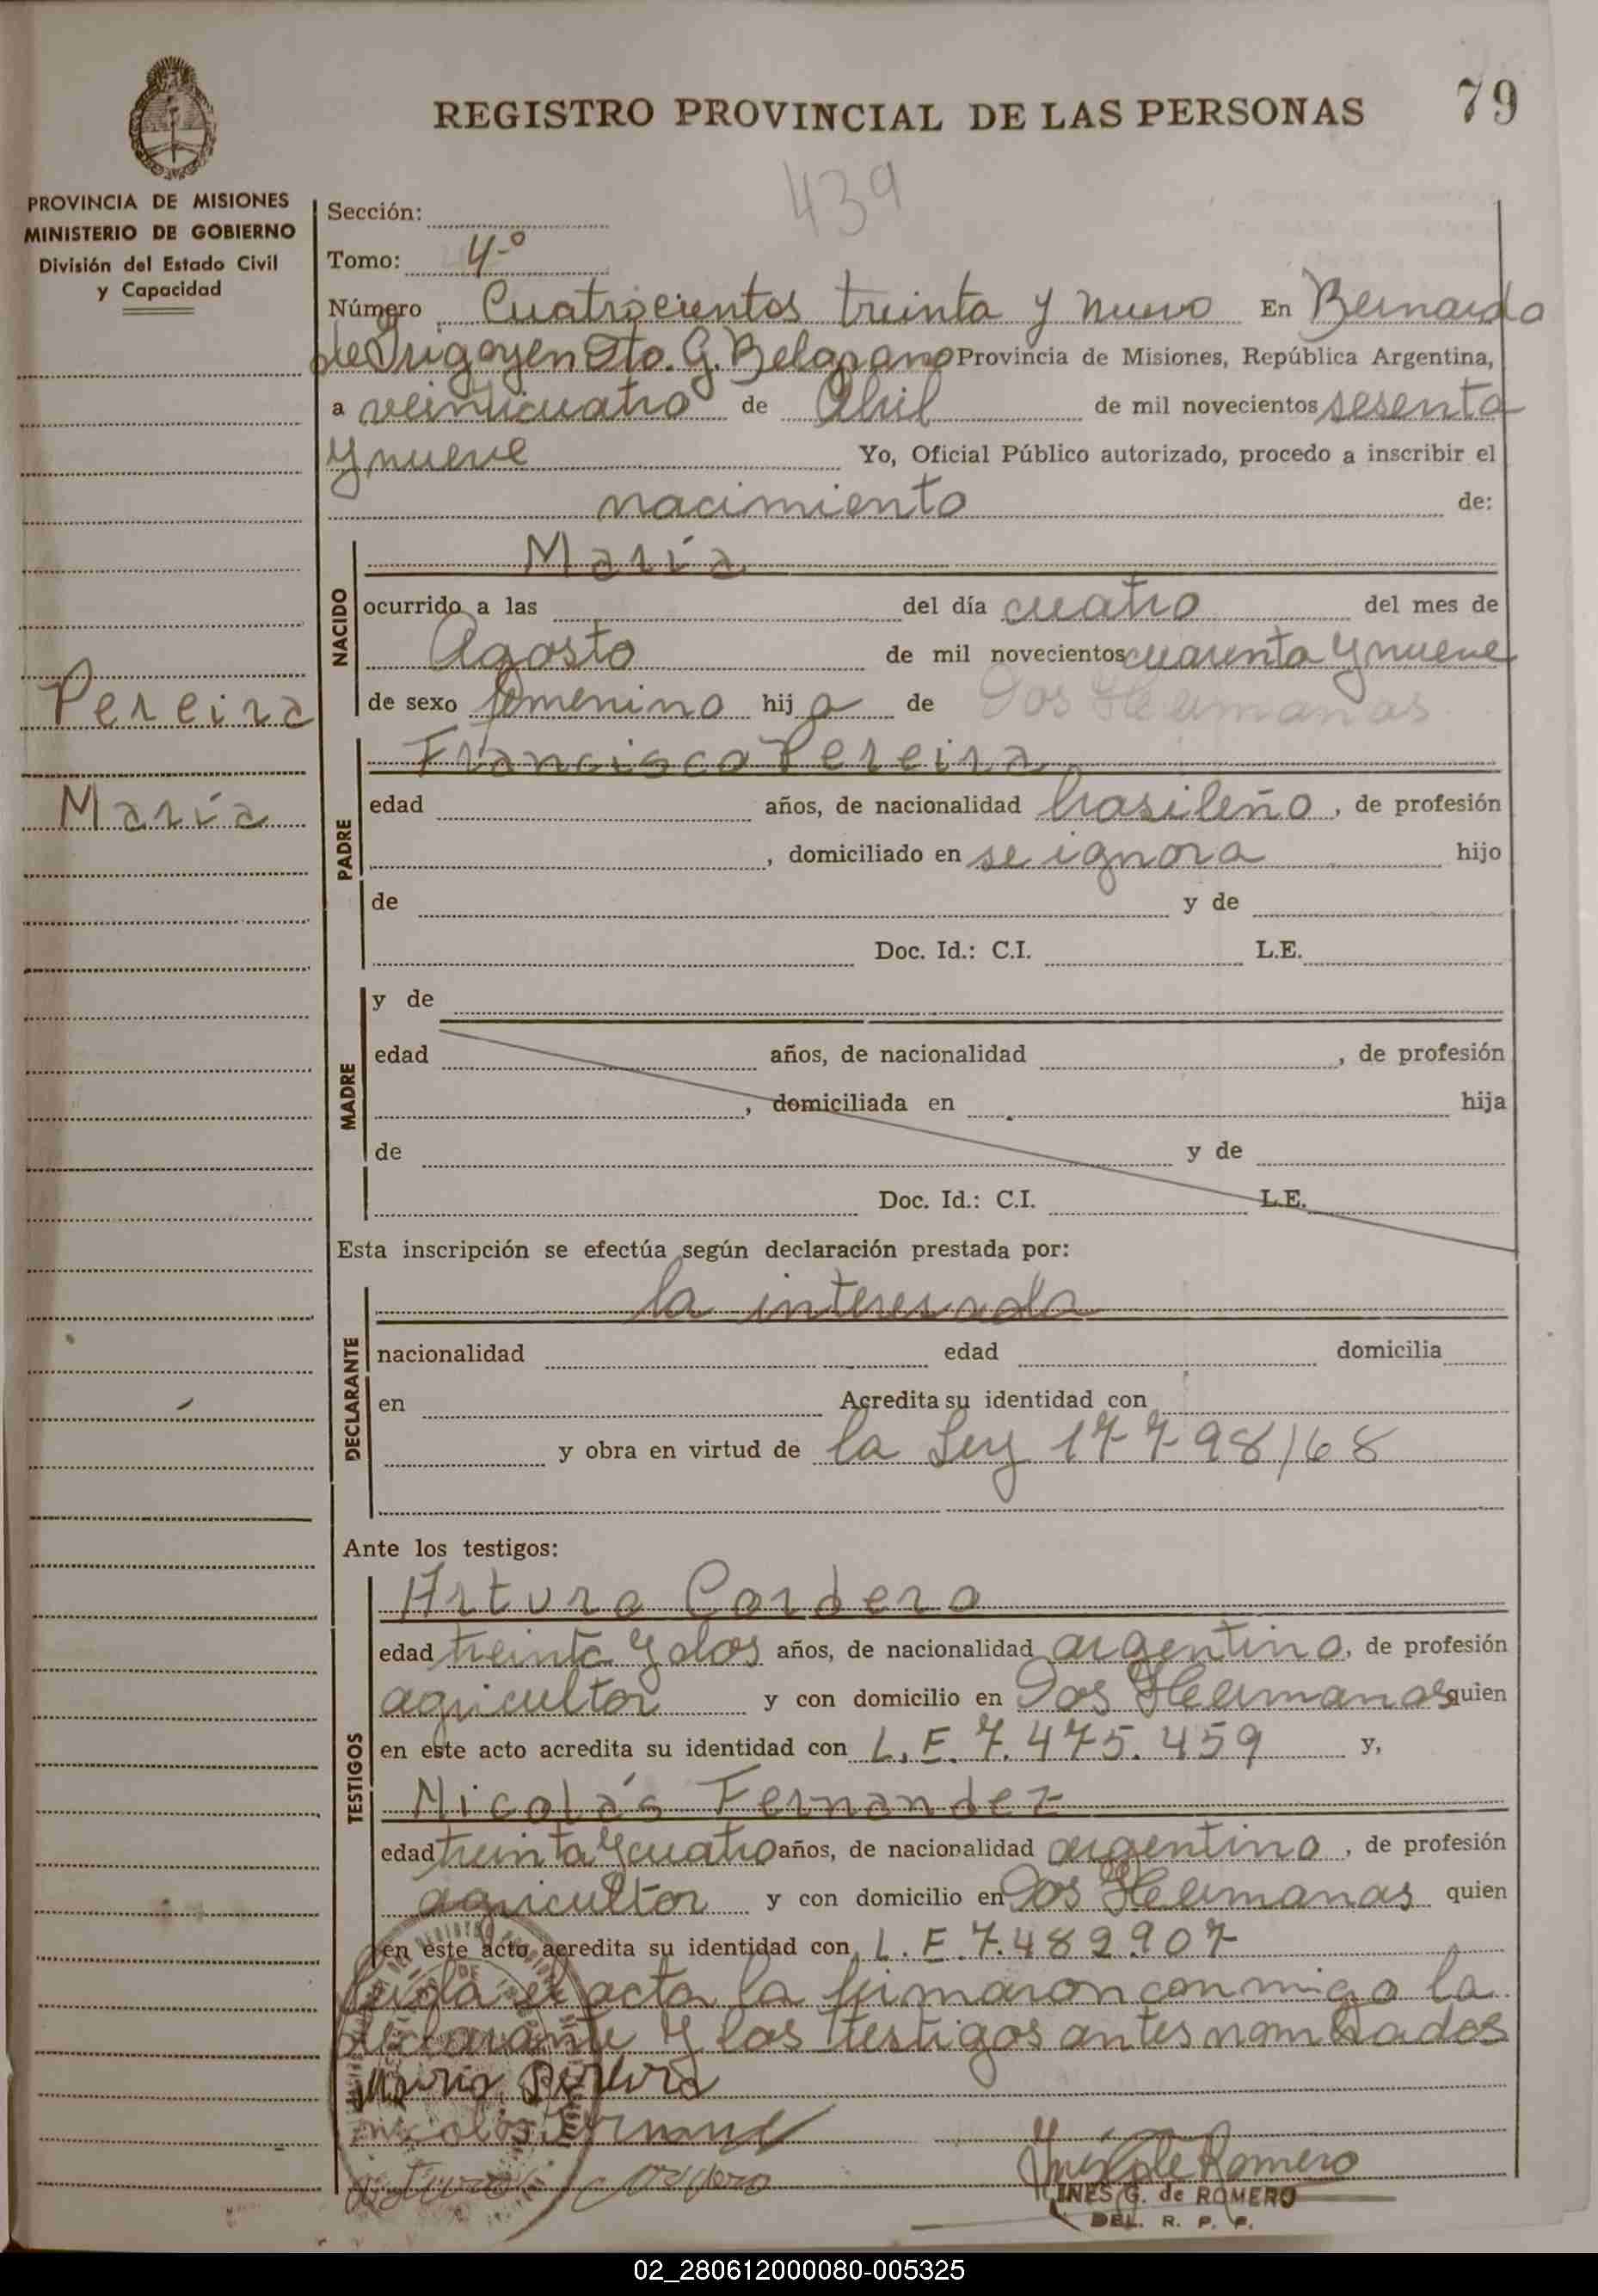 REGISTRO PROVINCIAL DE LAS PERSONAS
79
439
PROVINCIA DE MISIONES
MINISTERIO DE GOBIERNO
División del Estado Civil
y Capacidad
Pereira
María
Sección:
Tomo: 4º
Número Cuatrocientos treinta y nueve En Bernardo
de Irigoyen Dto. G. Belgrano Provincia de Misiones, República Argentina,
a veinticuatro de Abril de mil novecientos sesenta
y nueve Yo, Oficial Público autorizado, procedo a inscribir el
nacimiento de:
NACIDO
María
ocurrido a las del día cuatro del mes de
Agosto de mil novecientos cuarenta y nueve
de sexo femenino hij a de Dos Hermanas
PADRE
Francisco Pereira
edad años, de nacionalidad brasileño, de profesión
, domiciliado en se ignora hijo
de y de
Doc. Id.: C.I. L.E.
MADRE
y de
edad años, de nacionalidad , de profesión
, domiciliada en hija
de y de
Doc. Id.: C.I. L.E.
Esta inscripción se efectúa según declaración prestada por:
DECLARANTE
la interesada
nacionalidad edad domicilia
en Acredita su identidad con
y obra en virtud de la Ley 17798/68
Ante los testigos:
TESTIGOS
Arturo Cordero
edad treinta y dos años, de nacionalidad argentino, de profesión
agricultor y con domicilio en Dos Hermanas quien
en este acto acredita su identidad con L.E. 7.475.459 y,
Nicolás Fernandez
edad treinta y cuatro años, de nacionalidad argentino, de profesión
agricultor y con domicilio en Dos Hermanas quien
en este acto acredita su identidad con L.E. 7.482.907
Leída el acta la firmaron conmigo la
declarante y los testigos antes nombrados
María Pereira
Nicolás Fernandez
Arturo Cordero
Inés G de Romero
INES G. de ROMERO
DEL. R. P. P.
02_280612000080-005325